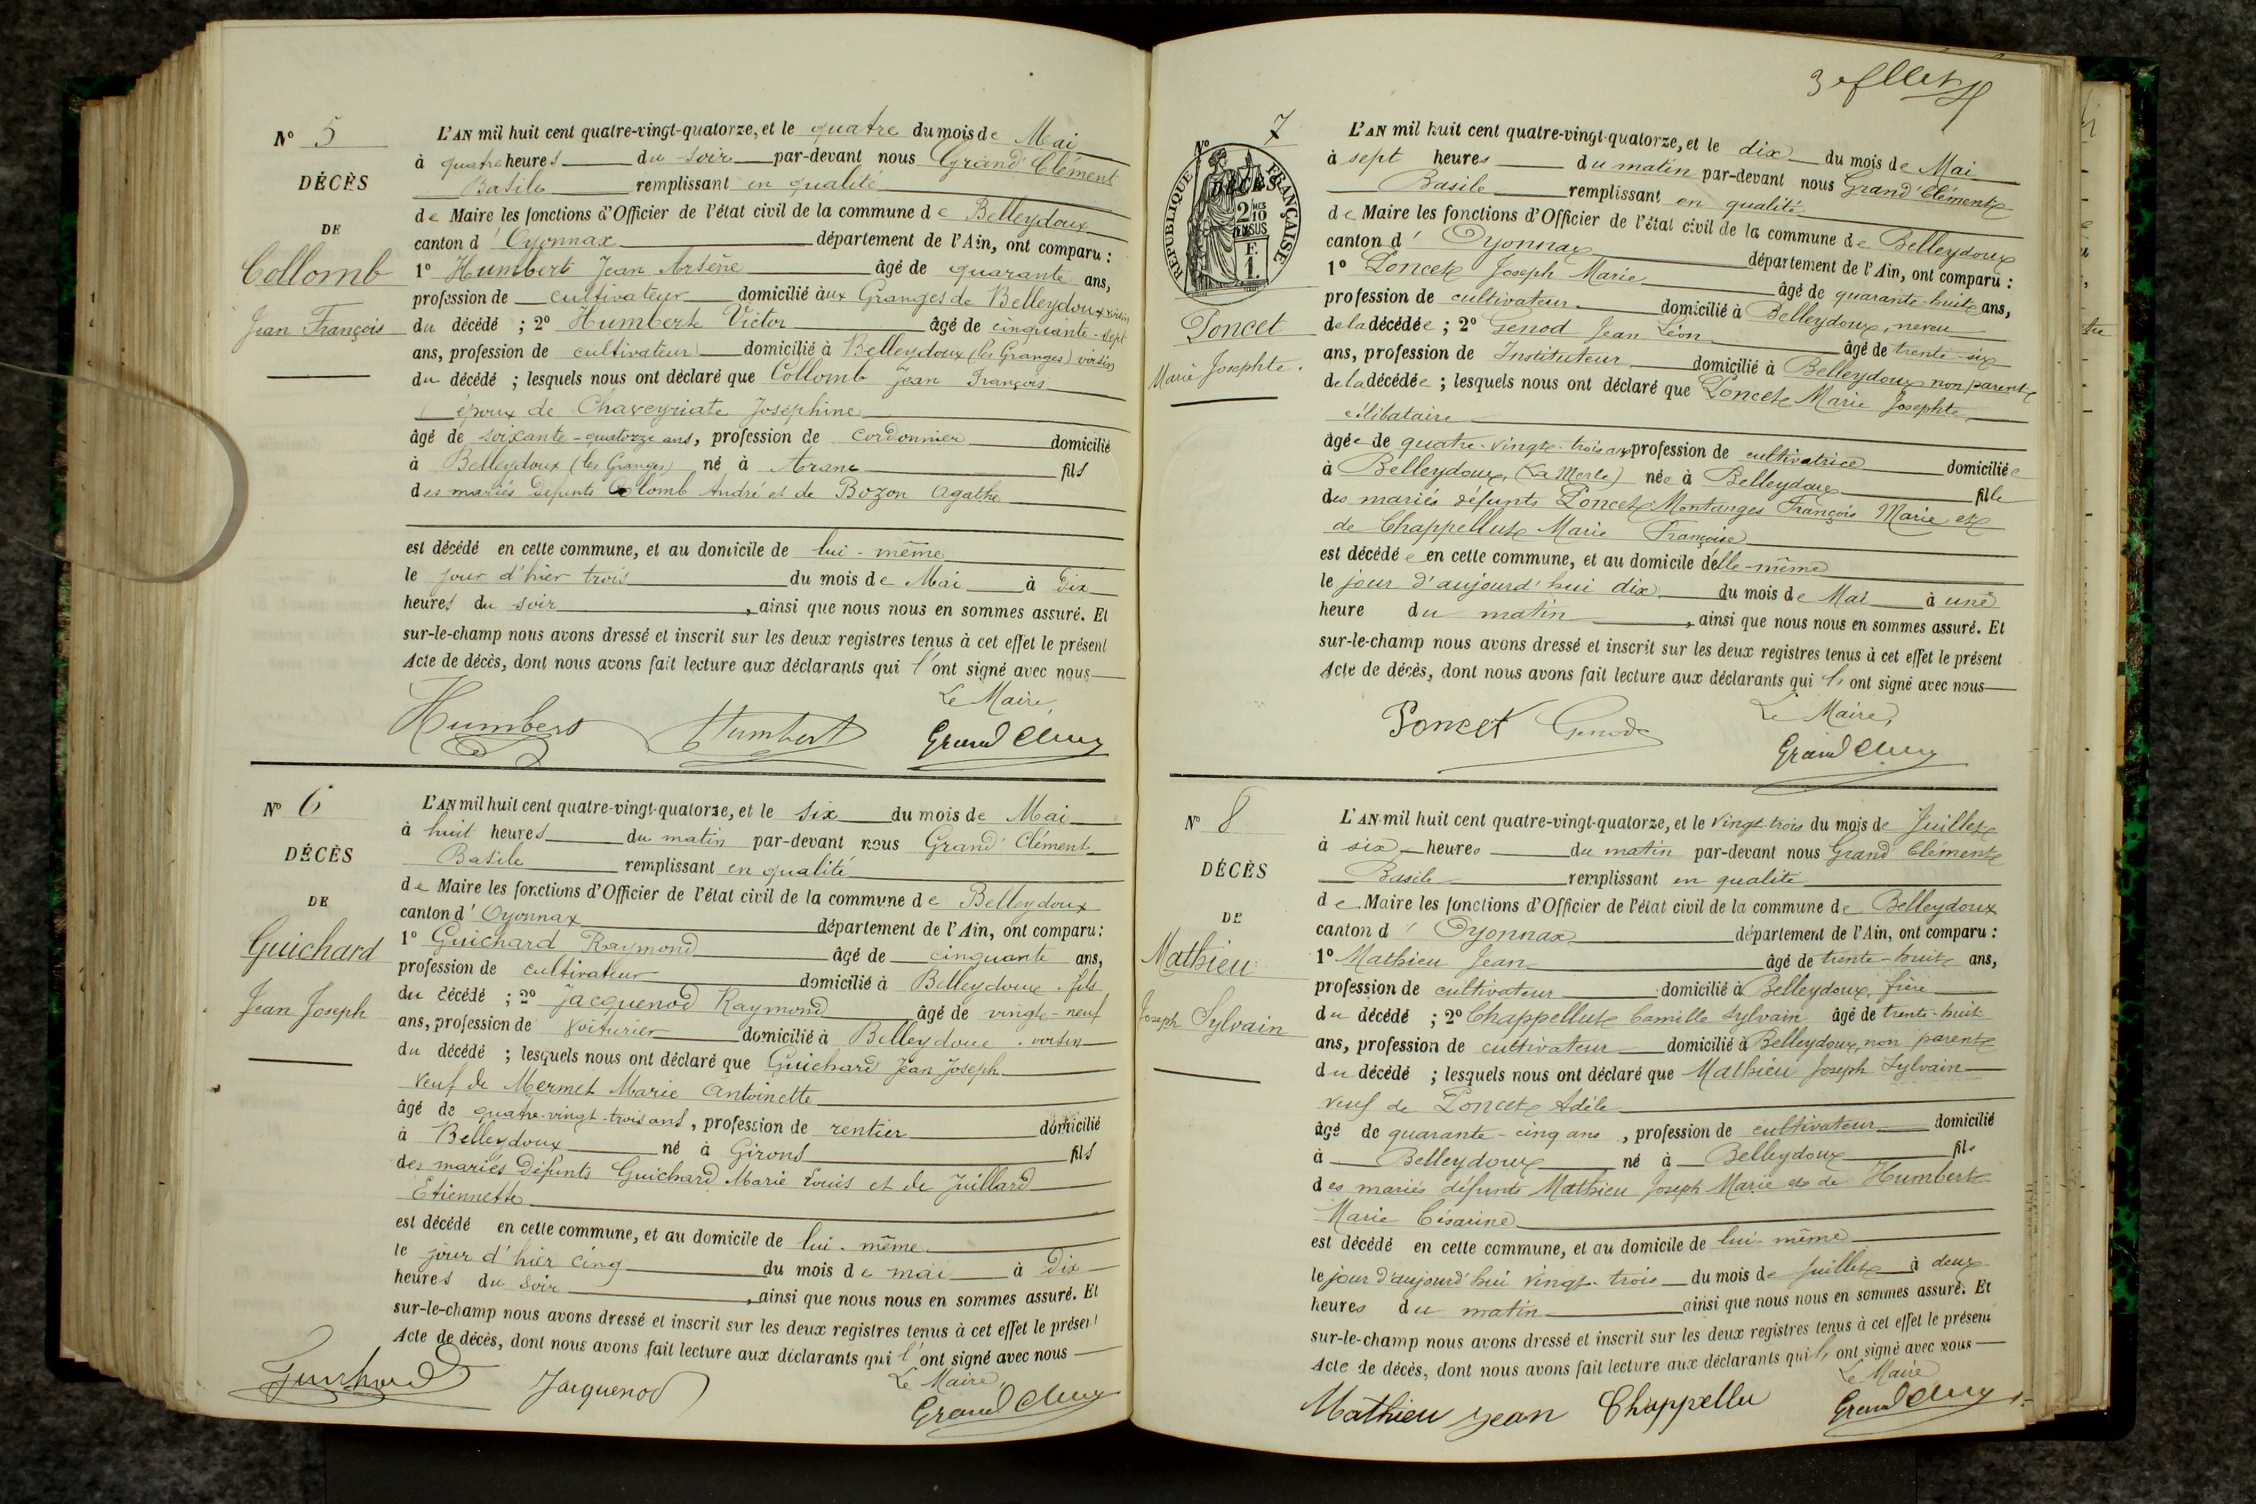 N° 5
DÉCÈS
DE
Collomb
Jean François
L'AN mil huit cent quatre-vingt-quatorze, et le quatre du mois de Mai
à quatre heures du soir par-devant nous Grand' Clément
Basile remplissant en qualité
de Maire les fonctions d'Officier de l'état civil de la commune de Belleydoux
canton d' Oyonnax département de l'Ain, ont comparu :
1° Humbert Jean Arsène âgé de quarante ans,
profession de cultivateur domicilié aux Granges de Belleydoux voisin
du décédé ; 2° Humbert Victor âgé de cinquante-sept
ans, profession de cultivateur domicilié à Belleydoux (les Granges) voisin
du décédé ; lesquels nous ont déclaré que Collomb Jean François
époux de Chaveyriate Joséphine
âgé de soixante-quatorze ans, profession de cordonnier domicilié
à Belleydoux (les Granges) né à Aranc fils
des mariés défunts Collomb André et de Bozon Agathe
est décédé en cette commune, et au domicile de lui-même
le jour d'hier trois du mois de Mai à dix
heures du soir, ainsi que nous nous en sommes assuré. Et
sur-le-champ nous avons dressé et inscrit sur les deux registres tenus à cet effet le présent
Acte de décès, dont nous avons fait lecture aux déclarants qui l'ont signé avec nous
Le Maire,
Humbert Humbert Grand Clém
N° 6
DÉCÈS
DE
Guichard
Jean Joseph
L'AN mil huit cent quatre-vingt-quatorze, et le six du mois de Mai
à huit heures du matin par-devant nous Grand' Clément
Basile remplissant en qualité
de Maire les fonctions d'Officier de l'état civil de la commune de Belleydoux
canton d' Oyonnax département de l'Ain, ont comparu :
1° Guichard Raymond âgé de cinquante ans,
profession de cultivateur domicilié à Belleydoux. fils
du décédé ; 2° Jacquenod Raymond âgé de vingt-neuf
ans, profession de voiturier domicilié à Belleydoux. voisin
du décédé ; lesquels nous ont déclaré que Guichard Jean Joseph
veuf de Mermet Marie Antoinette
âgé de quatre-vingt-trois ans, profession de rentier domicilié
à Belleydoux né à Girons fils
des mariés défunts Guichard Marie Louis et de Juillard
Etiennette
est décédé en cette commune, et au domicile de lui-même
le jour d'hier cinq du mois de mai à dix
heures du soir, ainsi que nous nous en sommes assuré. Et
sur-le-champ nous avons dressé et inscrit sur les deux registres tenus à cet effet le présent
Acte de décès, dont nous avons fait lecture aux déclarants qui l'ont signé avec nous
Le Maire,
Guichard Jacquenod Grand Clém
N° 7
DÉCÈS
RÉPUBLIQUE FRANÇAISE
2/10 EN SUS
F. 1.
Poncet
Marie Josephte.
L'AN mil huit cent quatre-vingt-quatorze, et le dix du mois de Mai
à sept heures du matin par-devant nous Grand' Clément
Basile remplissant en qualité
de Maire les fonctions d'Officier de l'état civil de la commune de Belleydoux
canton d' Oyonnax département de l'Ain, ont comparu :
1° Poncet Joseph Marie âgé de quarante-huit ans,
profession de cultivateur domicilié à Belleydoux, neveu
de la décédée ; 2° Genod Jean Léon âgé de trente-six
ans, profession de Instituteur domicilié à Belleydoux non parent
de la décédée ; lesquels nous ont déclaré que Poncet Marie Josephte
célibataire
âgée de quatre-vingt-trois ans profession de cultivatrice domiciliée
à Belleydoux, (La Merle) née à Belleydoux fille
des mariés défunts Poncet-Montanges François Marie et
de Chappellut Marie Françoise
est décédée en cette commune, et au domicile d'elle-même
le jour d'aujourd'hui dix du mois de Mai à une
heure du matin, ainsi que nous nous en sommes assuré. Et
sur-le-champ nous avons dressé et inscrit sur les deux registres tenus à cet effet le présent
Acte de décès, dont nous avons fait lecture aux déclarants qui l'ont signé avec nous
Le Maire,
Poncet Genod Grand Clém
N° 8
DÉCÈS
DE
Mathieu
Joseph Sylvain
L'AN mil huit cent quatre-vingt-quatorze, et le vingt-trois du mois de Juillet
à six heures du matin par-devant nous Grand Clément
Basile remplissant en qualité
de Maire les fonctions d'Officier de l'état civil de la commune de Belleydoux
canton d' Oyonnax département de l'Ain, ont comparu :
1° Mathieu Jean âgé de trente-huit ans,
profession de cultivateur domicilié à Belleydoux, frère
du décédé ; 2° Chappellut Camille Sylvain âgé de trente-huit
ans, profession de cultivateur domicilié à Belleydoux, non parent
du décédé ; lesquels nous ont déclaré que Mathieu Joseph Sylvain
veuf de Poncet Adèle
âgé de quarante-cinq ans, profession de cultivateur domicilié
à Belleydoux né à Belleydoux fils
des mariés défunts Mathieu Joseph Marie et de Humbert
Marie Césarine
est décédé en cette commune, et au domicile de lui-même
le jour d'aujourd'hui vingt-trois du mois de Juillet à deux
heures du matin ainsi que nous nous en sommes assuré. Et
sur-le-champ nous avons dressé et inscrit sur les deux registres tenus à cet effet le présent
Acte de décès, dont nous avons fait lecture aux déclarants qui l'ont signé avec nous
Le Maire
Mathieu jean Chappellu Grand Clém